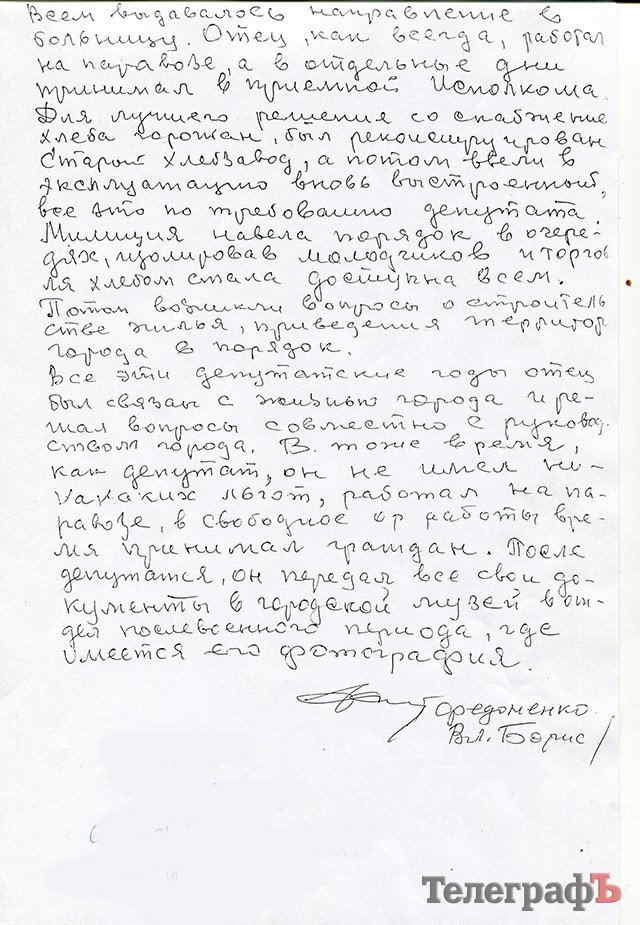 Всем выдавалось направление в
больницу. Отец, как всегда, работал
на паравозе, а в отдельные дни
принимал в приемной Исполкома.
Для лучшего решения со снабжение
хлеба горожан, был реконструирован
Старый Хлебзавод, а потом ввели в
эксплуатацию вновь выстроенный,
все это по требованию депутата.
Милиция навела порядок в очере-
дях, изолировав молодчиков и торгов
ля хлебом стала доступна всем.
Потом возникли вопросы о строитель
стве жилья, приведения территор
города в порядок.
Все эти депутатские годы отец
был связан с жизнью города и ре-
шал вопросы совместно с руковод.
ством города. В тоже время,
как депутат, он не имел ни-
каких льгот, работал на па-
равозе, в свободное от работы вре-
мя принимал граждан. После
депутатся, он передал все свои до-
кументы в городской музей в от-
дел послевоенного периода, где
имеется его фотография.
Федоненко
Вл. Борис/
ТелеграфЪ